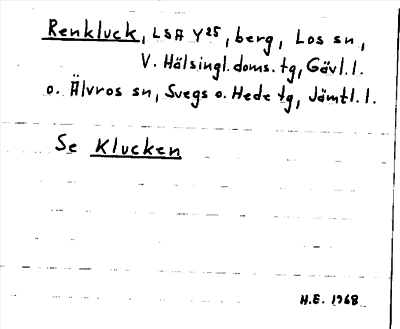 Renkluck, LSA Y25, berg, Los sn,
V. Hälsingl. doms. tg, Gävl. l.
o. Älvros sn, Svegs o. Hede tg, Jämtl. l.
Se Klucken
H.E. 1968